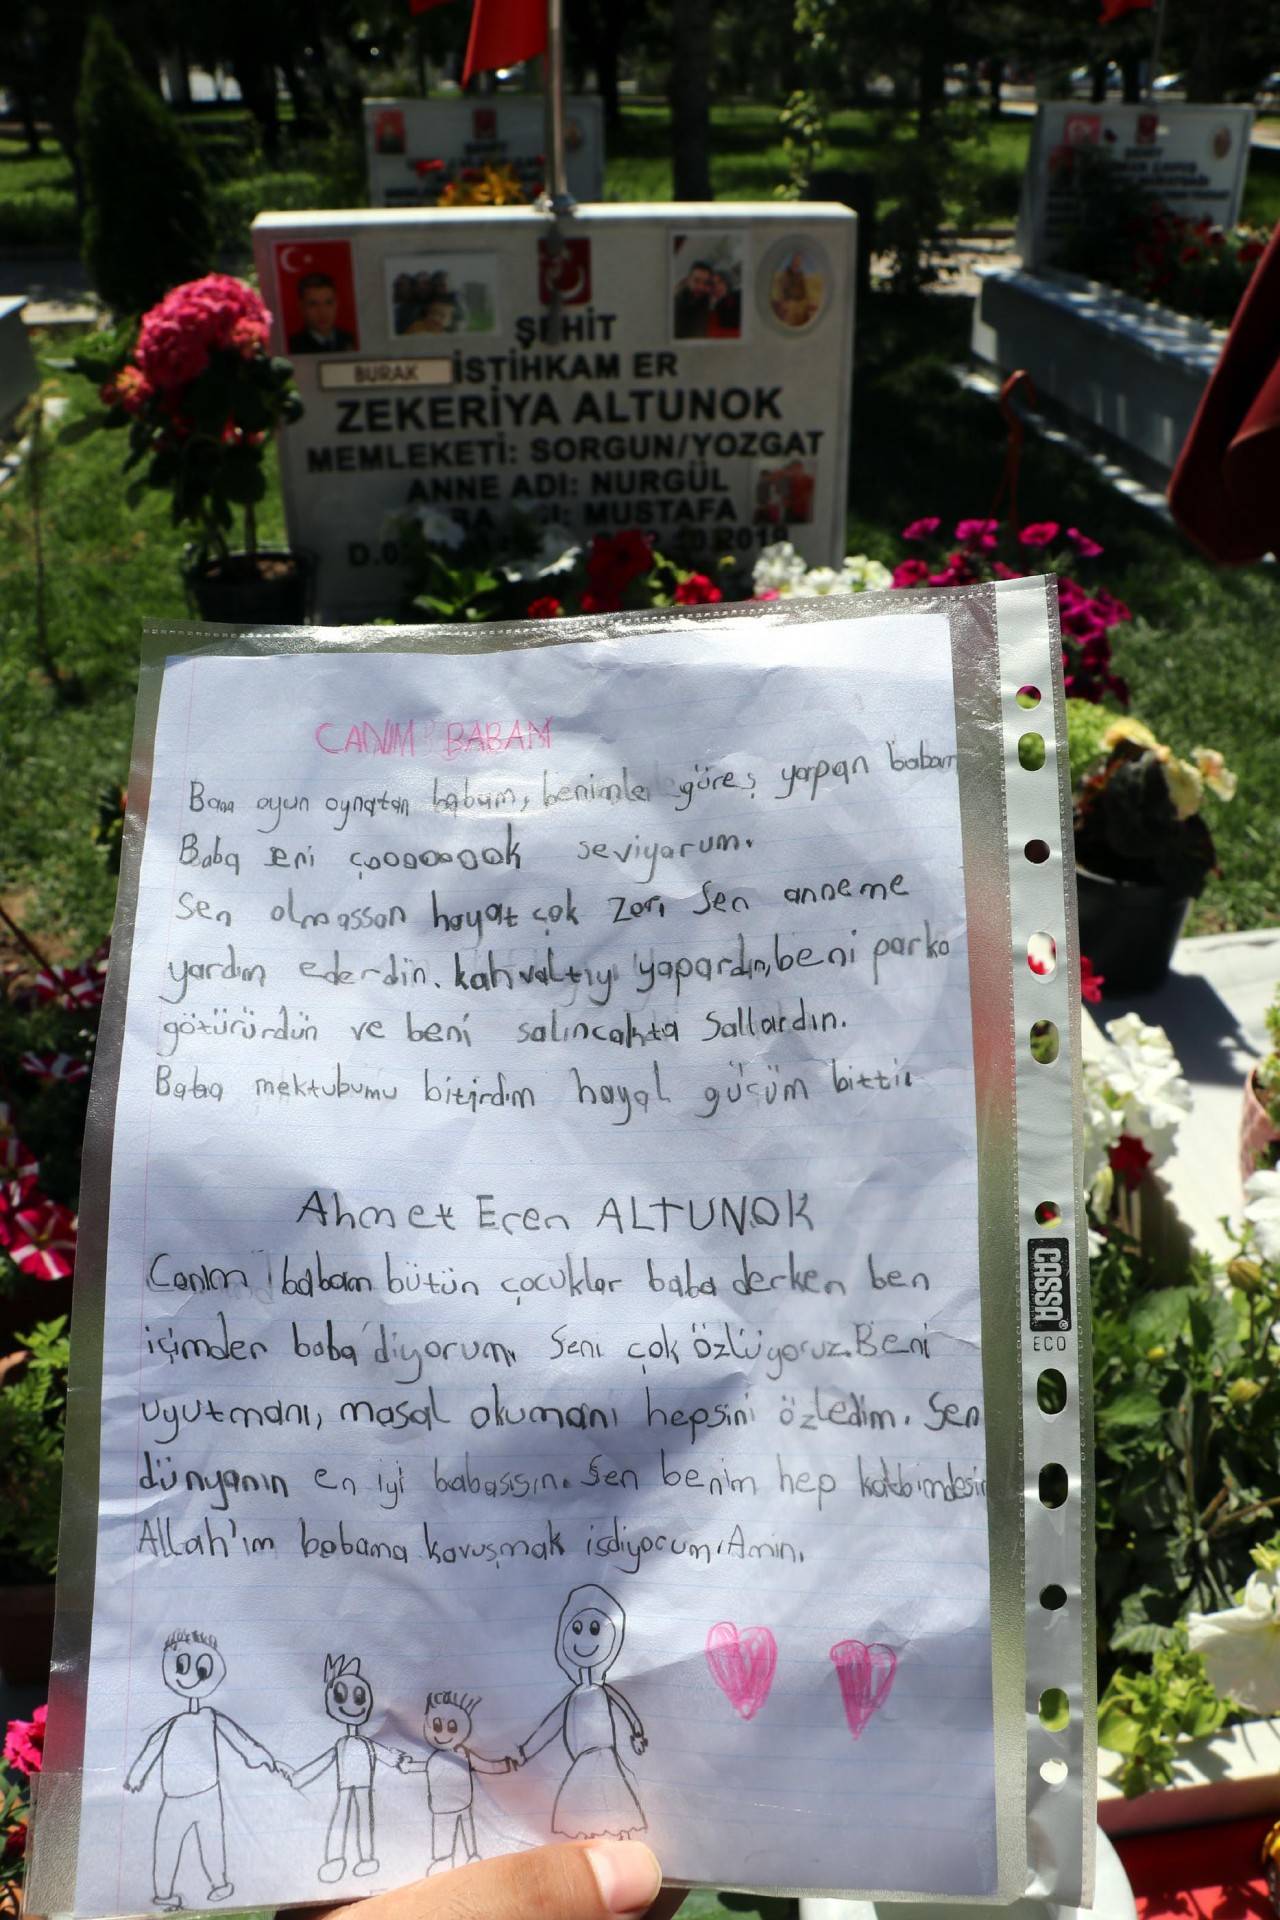 ŞEHİT
BURAK
İSTİHKAM ER
ZEKERİYA ALTUNOK
MEMLEKETİ: SORGUN/YOZGAT
ANNE ADI: NURGÜL
MUSTAFA
ŞEHİT
CANIM BABAM
Bana oyun oynatan babam, benimle göreş yapan babam
Baba seni çooooooook seviyorum.
Sen olmassan hayat çok zor. Sen anneme
yardım ederdin. kahvaltıyı yapardın, beni parka
götürürdün ve beni salıncakta sallardın.
Baba mektubumu bitirdim hayal güsüm bitti.
Ahmet Eren ALTUNOK
Canım babam bütün çocuklar baba derken ben
içimden baba diyorum. Seni çok özlüyoruz. Beni
uyutmanı, masal okumanı hepsini özledim. Sen
dünyanın en iyi babasısın. Sen benim hep kalbimdesin
Allah'ım babama kavuşmak isdiyorum. Amin.
CASSA
ECO